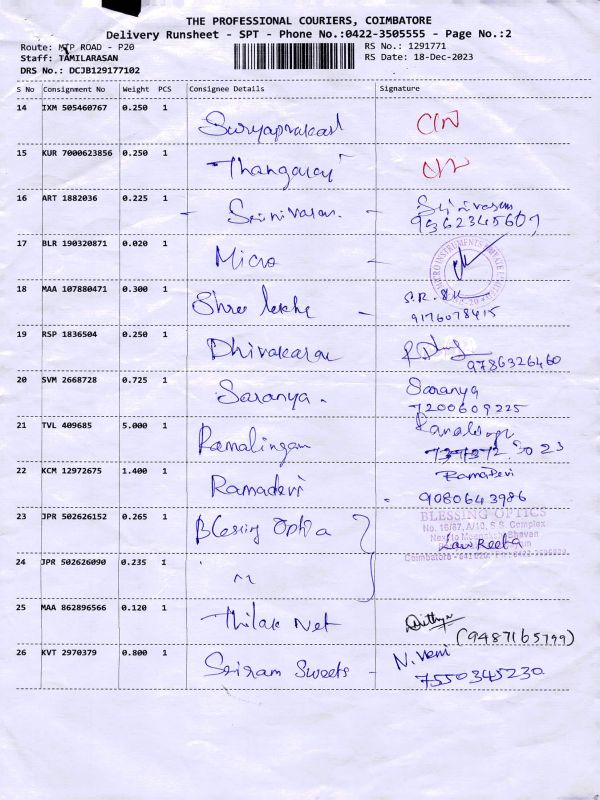 THE PROFESSIONAL COURIERS, COIMBATORE
Delivery Runsheet - SPT - Phone No.:0422-3505555 - Page No.:2
Route: MTP ROAD - P20
RS No.: 1291771
Staff: TAMILARASAN
RS Date: 18-Dec-2023
DRS No.: DCJB129177102
S No Consignment No Weight PCS Consignee Details Signature
14 IXM 505460767 0.250 1 Suryaprakash
15 KUR 7000623856 0.250 1 Thangaraj
16 ART 1882036 0.225 1 - Srinivasan. - Srinivasan
9362345607
17 BLR 190320871 0.020 1 Micro -
18 MAA 107880471 0.300 1 Shree lekha S.R.
9176078415
19 RSP 1836504 0.250 1 Dhivakaran
9786326460
20 SVM 2668728 0.725 1 Saranya. Saranya
7200609225
21 TVL 409685 5.000 1 Ramalingam
22 KCM 12972675 1.400 1 Ramadevi RamaDevi
9080643986
23 JPR 502626152 0.265 1 Blessing Optica
BLESSING OPTICS
No. 16/87, A/10, S.S. Complex
24 JPR 502626090 0.235 1 "
25 MAA 862896566 0.120 1 Thilak Net
(9487165799)
26 KVT 2970379 0.800 1 Sriram Sweets - N. Veni
7550345230